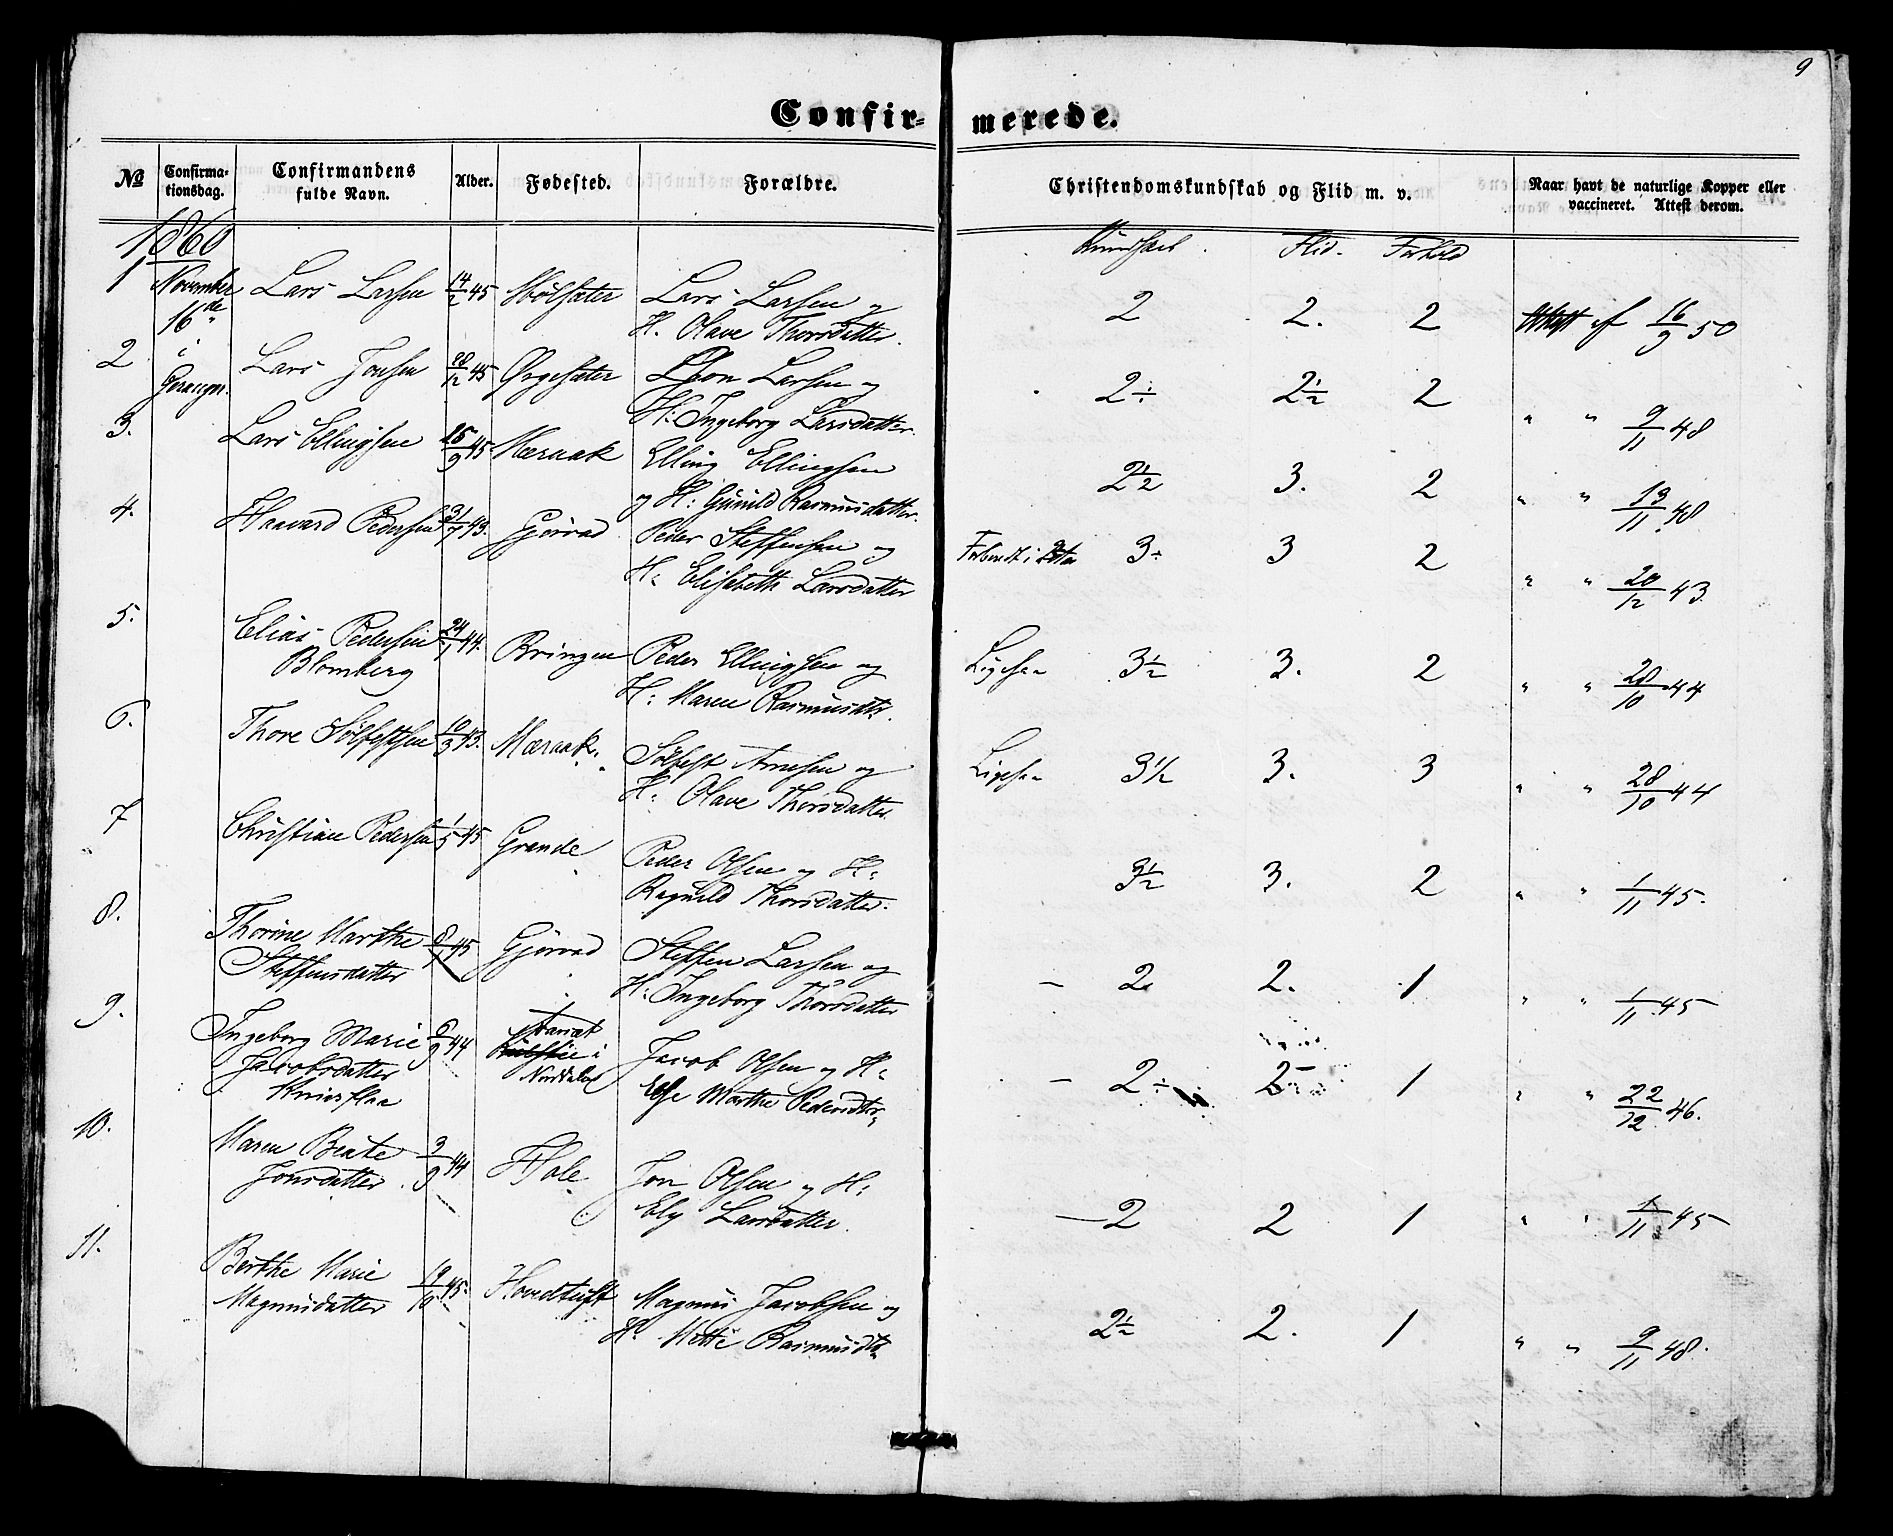 9
Confir- merede.
No
Confirma-
tionsdag.
Confirmandens
fulde Navn.
Alder.
Fødested.
Forældre.
Christendomskundskab og Flid m. v.
Naar havt de naturlige Kopper eller
vaccineret. Attest derom.
1860
Kundskab. Flid. Forhold
1 November 16de Lars Larsen 14/2 45 Lars Larsen og
H. Olave Thorsdatter.
2 2. 2 Attest af 16/9 50
2 i Geranger. Lars Jonsen 28/12 45 Ørgesæter Jon Larsen og
H: Ingeborg Larsdatter.
2÷ 2½ 2 " " 9/11 48
3. Lars Ellingsen /9 45 Mæraak Elling Ellingsen
og H: Gunild Rasmusdatter.
2½ 3. 2 " " 13/11 48
4. Haavard Pedersen 31/7 43. Gjørvad Peder Steffensen og
H: Elisabeth Larsdatter
3÷ 3 2 " " 20/12 43.
5. Elias Pedersen
Blomberg 24/1 44. Bringen Peder Ellingsen og
H: Maren Rasmusdtr.
Ligesaa 3½ 3. 2 " " 28/10 44
6. Thore Sølfestsen 10/3 43. Mæraak. Sølfest Arnesen og
H: Olave Thorsdatter
Ligesaa 3½ 3. 3 " " 28/10 44
7 Christian Pedersen 1/5 45 Grande Peder Olsen og H:
Ragnild Thorsdatter.
3½ 3. 2 " " 1/11 45.
8. Thorine Marthe
Steffensdatter 8/1 45 Gjørvad Steffen Larsen og
H: Ingeborg Thorsdatter
- 2 2. 1 " " 1/11 45
9. Ingeborg Marie
Jacobsdatter 6/9 44 i
Norddalen Jacob Olsen og H:
Else Marthe Pedersdtr.
- 2÷ 2- 1 " " 22/12 46.
10. Maren Beate
Jonsdatter. 3/9 44 Hole Jon Olsen og H:
Ely Larsdatter.
- 2 2 1 " " 1/11 45
11. Berthe Marie
Magnusdatter 19/10 45. Hovdtuft Magnus Jacobsen og
H. Mette Rasmusdtr.
2½ 2. 1 " " 9/11 48.